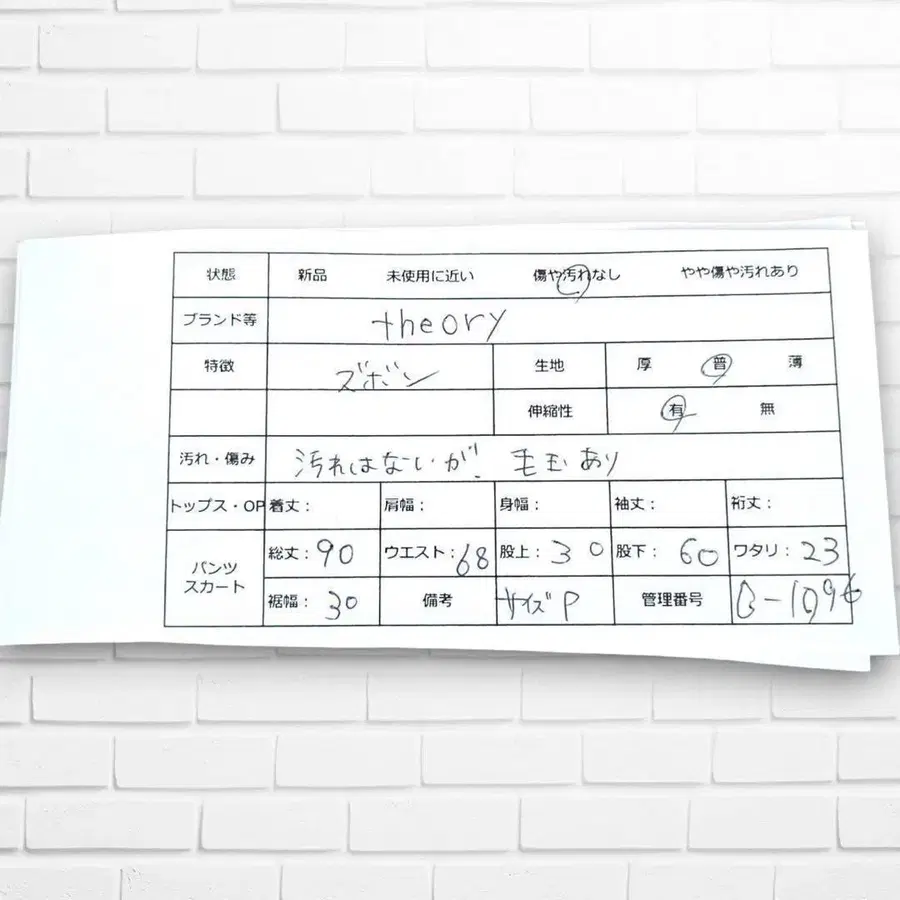 状態 新品 未使用に近い 傷や汚れなし やや傷や汚れあり
ブランド等 theory
特徴 ズボン 生地 厚 普 薄
伸縮性 有 無
汚れ・傷み 汚れはないが、毛玉あり
トップス・OP 着丈: 肩幅: 身幅: 袖丈: 裄丈:
パンツ スカート 総丈:90 ウエスト:68 股上:30 股下:60 ワタリ:23
裾幅:30 備考 サイズP 管理番号